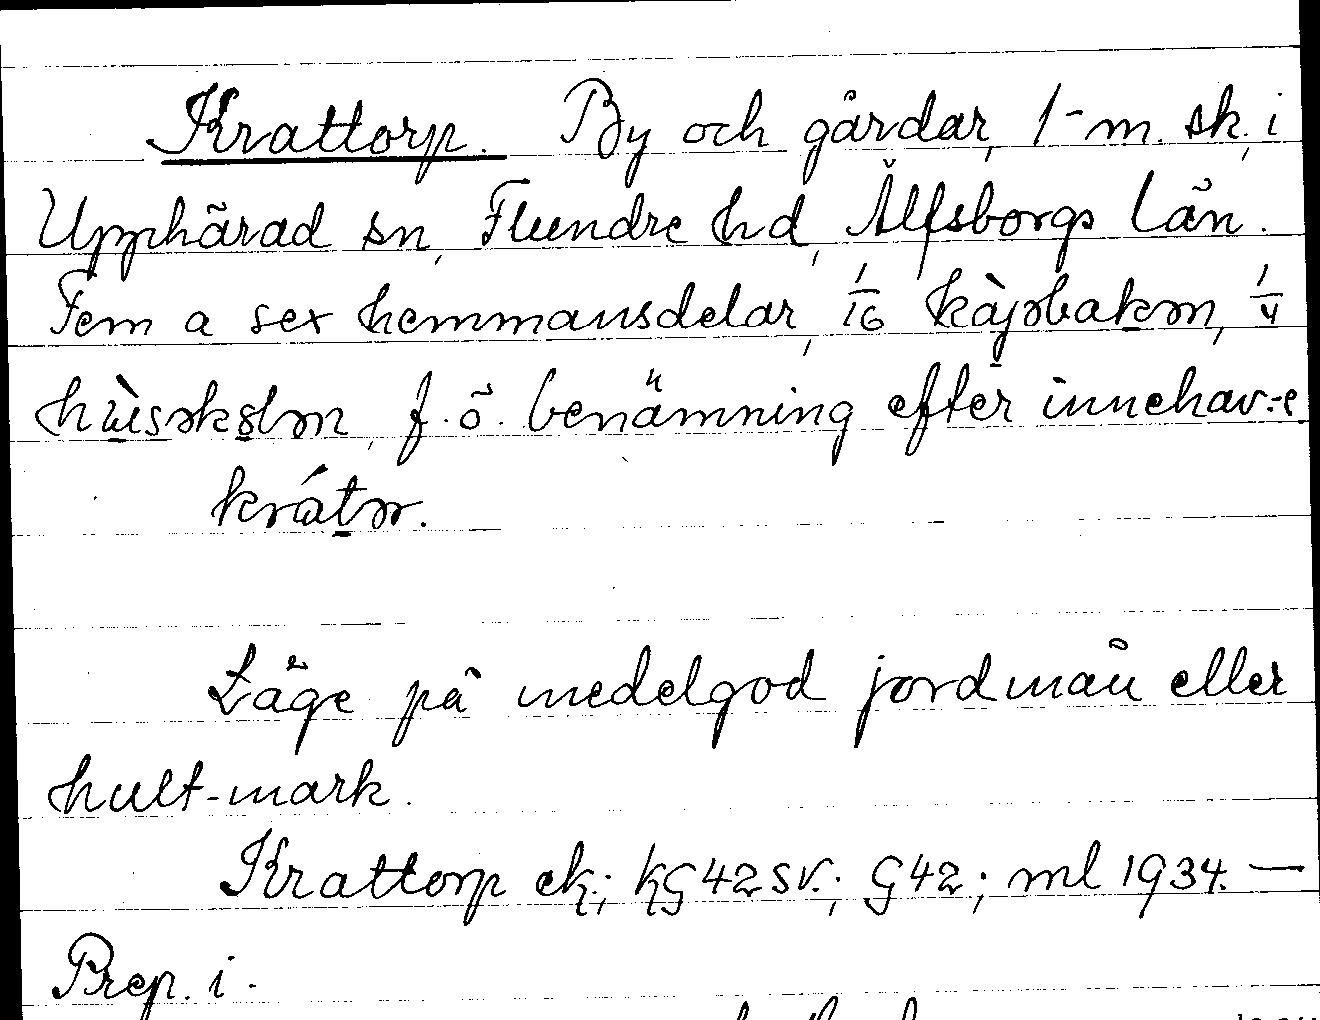 Krattorp. By och gårdar, 1-m. sk., i
Upphärad sn, Flundre hd, Älfsborgs län.
Fem a sex hemmansdelar, 1/16 kàjsbakən, 1/4
hùsəkələn, f. ö. benämning efter innehav:e
krátər.
Läge på medelgod jordmån eller
hult-mark.
Krattorp ek.; kG 42 SV.; G 42; ml 1934. —
Prep. i.